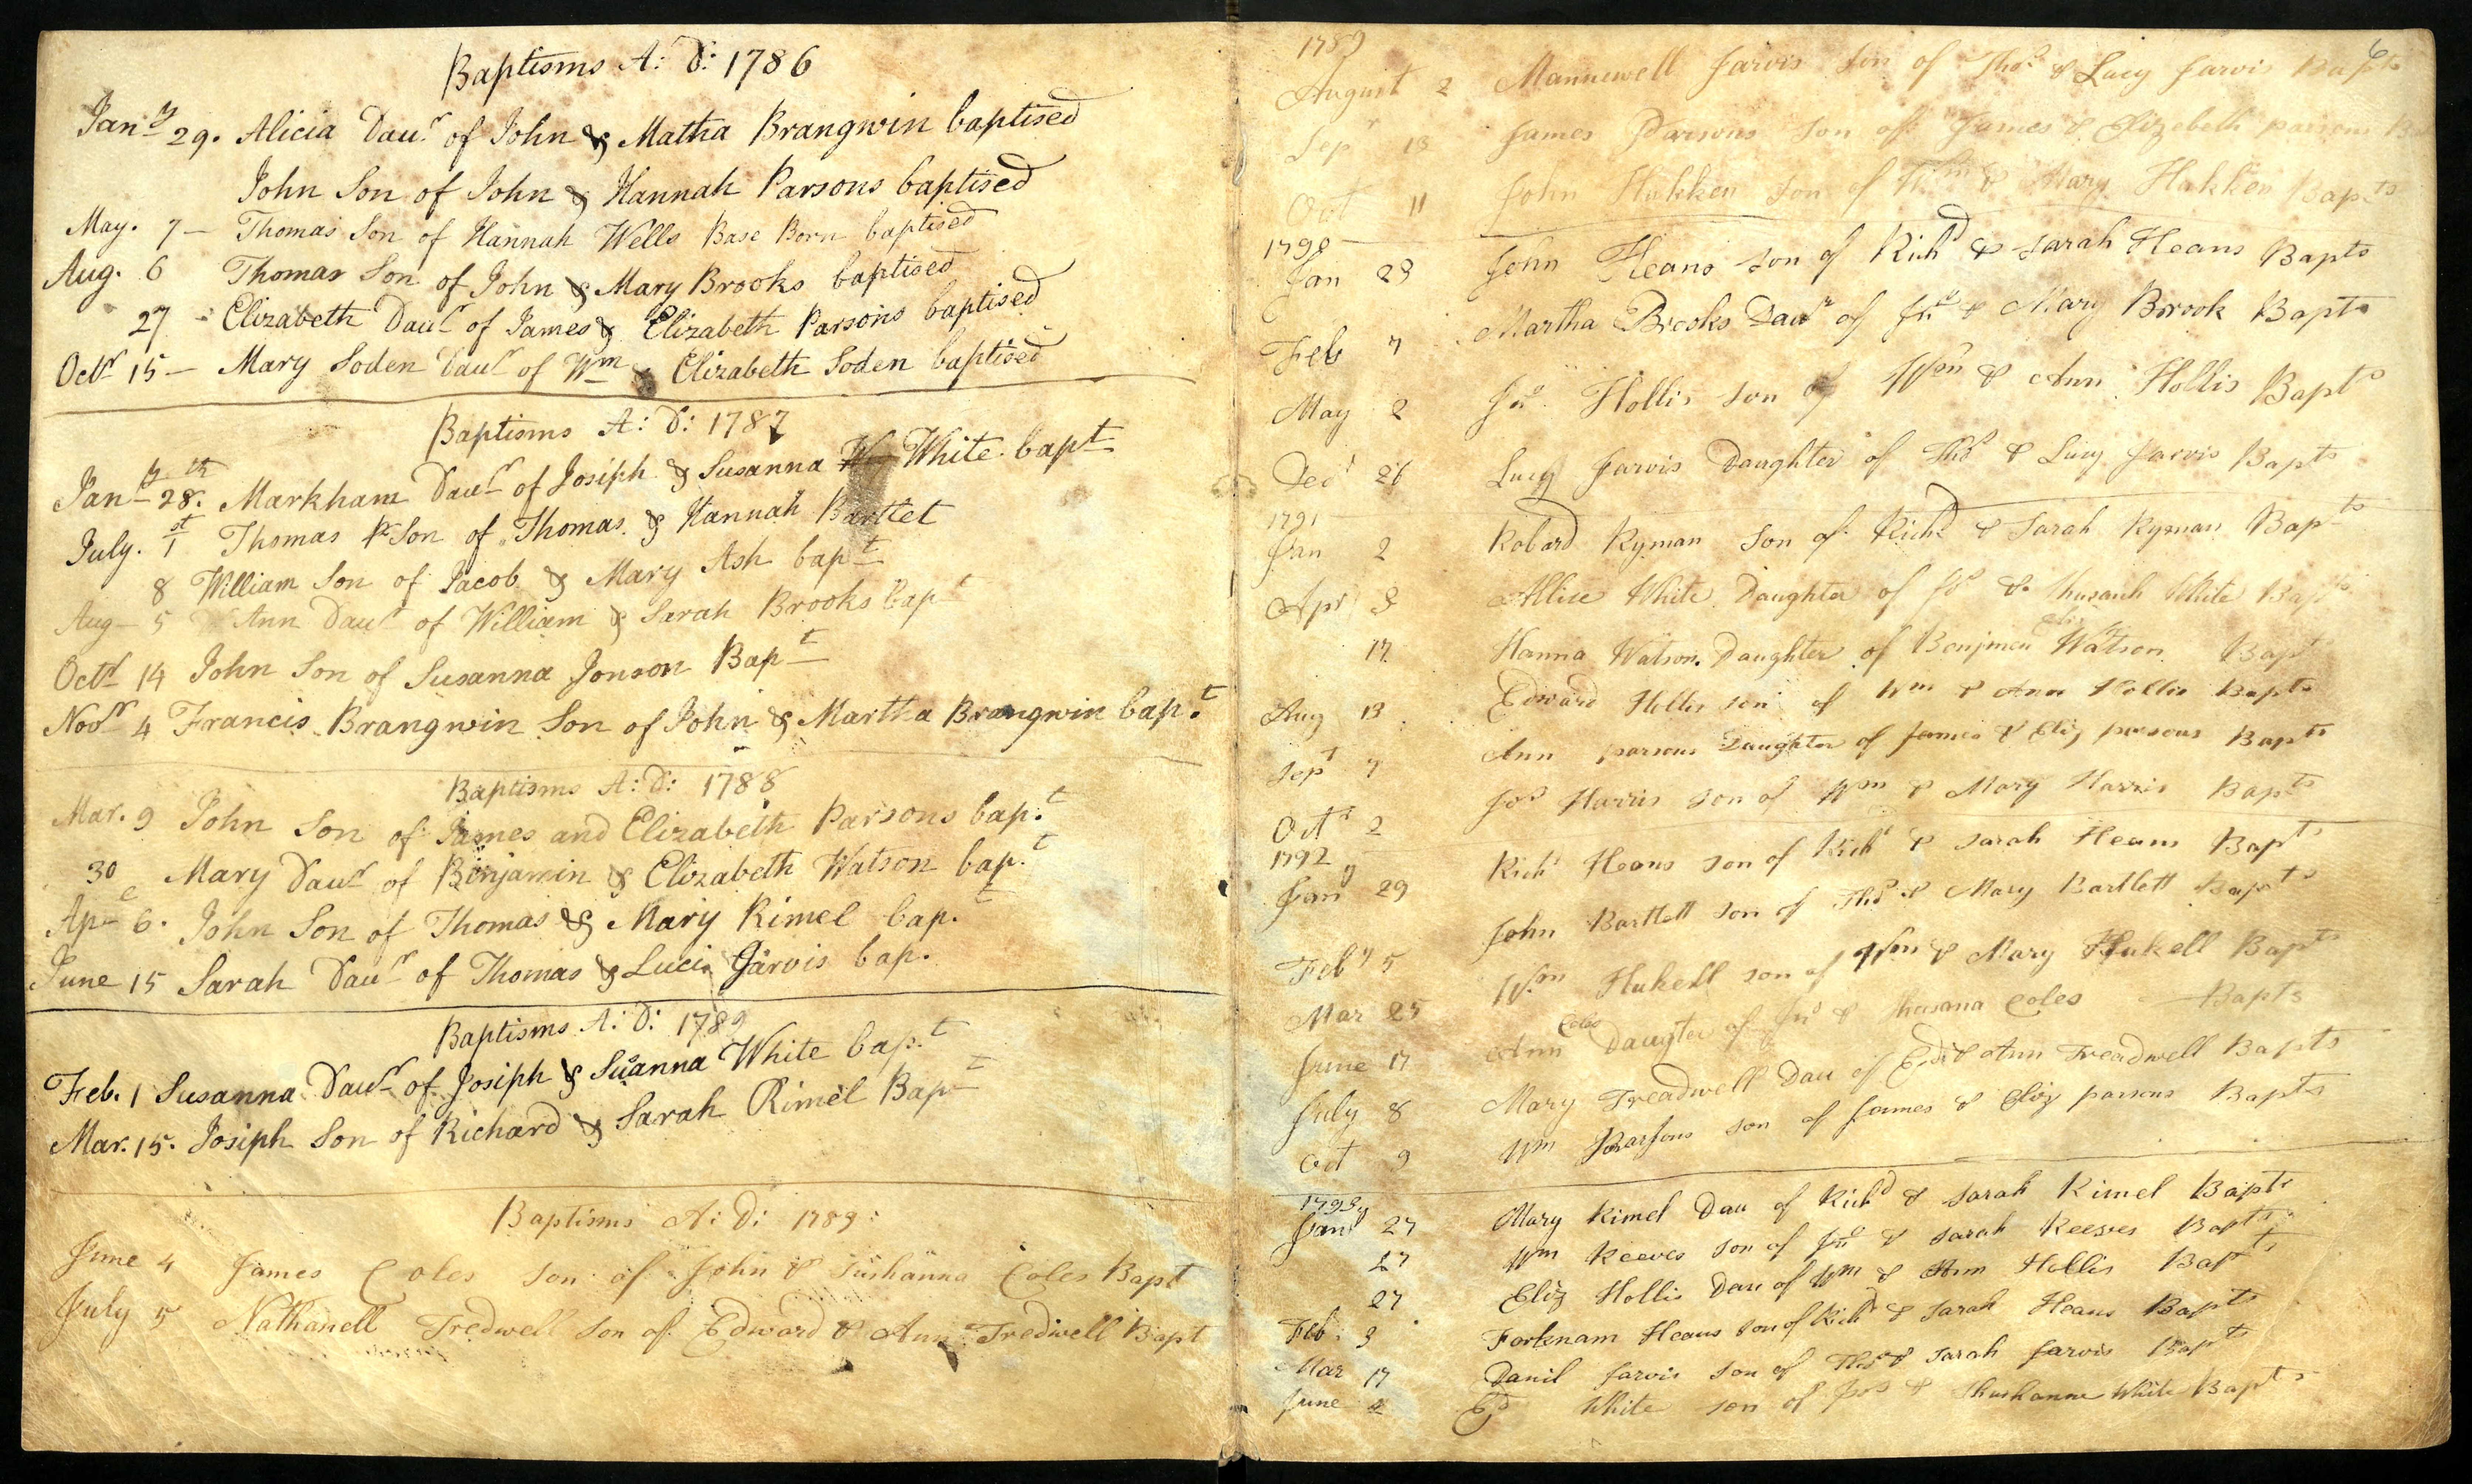 Baptisms A: D: 1786
Jan.y 29. Alicia Daur. of John & Matha Brangwin baptised
John Son of John & Hannah Parsons baptised
May. 7 — Thomas Son of Hannah Wells Base Born baptised
Aug. 6 Thomas Son of John & Mary Brooks baptised
27 - Elizabeth Daur of James & Elizabeth Parsons baptised
Octr 15 — Mary Soden Daur of Wm & Elizabeth Soden baptised
Baptisms A: D: 1787
Jany 28th. Markham Daur of Josiph & Susanna White bapt
July. 1st Thomas Son of Thomas & Hannah Bartlet
8 William Son of Jacob & Mary Ash bapt
Aug — 5 Ann Daur of William & Sarah Brooks bapt
Octr 14 John Son of Susanna Jonson Bapt
Novr 4 Francis Brangwin Son of John & Martha Brangwin bap.t
Baptisms A: D: 1788
Mar. 9 John Son of James and Elizabeth Parsons bap.t
30 Mary Daur of Binjamin & Elizabeth Watson bap.t
Ap.e 6. John Son of Thomas & Mary Kimel bap.t
June 15 Sarah Daur of Thomas & Lucia Jarvis bap.
Baptisms A: D: 1789
Feb. 1 Susanna Daur of Josiph & Suanna White bap.t
Mar. 15. Josiph Son of Richard & Sarah Rimel Bapt
Baptisms A: D: 1789:
June 4 James Coles Son of John & Sushanna Coles Bapt
July 5 Nathanell Tredwell Son of Edward & Ann Tredwell Bapt
6
1789
August 2 Mannewell Jarvis Son of Thos & Lucy Jarvis Bapts
Sepr 13 James Parsons Son of James & Elizebeth parsons
Oct 11 John Hukken Son of Wm & Mary Hukken Bapts
1790
Jan 23 John Heans Son of Richd & Sarah Heans Bapts
Feb 7 Martha Brooks Daur of Jno & Mary Brook Bapts
May 2 Jno. Hollis Son of Wm & Ann Hollis Bapts
Decr 26 Lucy Jarvis Daughter of Thos & Lucy Jarvis Bapts
1791
Jan 2 Robard Ryman Son of Richd & Sarah Ryman Bapts
Apr 3 Allice White Daughter of Jos & Shusanh White Bapts
17 Hanna Watson Daughter of Benjmen & Eliz Watson Bapts
Aug 13 Edward Hollis Son of Wm & Ann Hollis Bapts
Sept 7 Ann parsons Daughter of James & Eliz parsons Bapts
Octr 2 Jos Harris Son of Wm & Mary Harris Bapts
1792
Jany 29 Richd Heans Son of Richd & Sarah Heans Bapts
Feby 5 John Bartlett Son of Thos & Mary Bartlett Bapts
Mar 25 Wm Hukell Son of Wm & Mary Hukell Bapts
June 17 Ann Coles Daugter of Jno & Shusana Coles — Bapts
July 8 Mary Treadwell Dau of Edd & Ann Treadwell Bapts
Oct 9 Wm Parsons Son of James & Eliz parsons Bapts
1793
Jany 27 Mary Kimel Dau of Richd & Sarah Kimel Bapts
27 Wm Keeves Son of Jno & Sarah Keeves Bapts
27 Eliz Hollis Dau of Wm & Ann Hollis Bapts
Feb: 3 Forknam Heans Son of Richd & Sarah Heans Bapts
Mar 17 Danil Jarvis Son of Thos & Sarah Jarvis Bapts
June 2 Ed White Son of Jos & Shushanna White Bapts